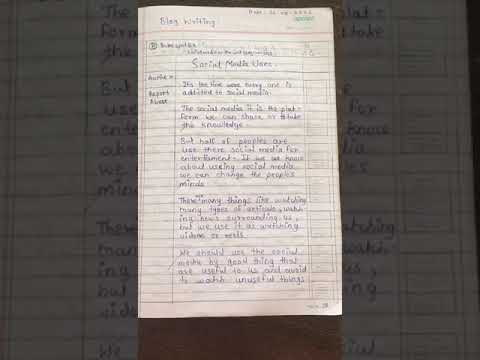 Blog Writing
Social Media Uses.
Its the time were every one is
addicted to social media.
Report
Abuse
The social media it is the plat-
form we can share or take
the knowledge.
But half of peoples are
use there social media for
entertainment. If we we know
about using social media
we can change the peoples
minds
There many things like watching
many types of articals, watch-
ing news surrounding us,
but we use it as watching
videos or reels.
We should use the social
media by good thing that
are useful to us and avoid
to watch unuseful things